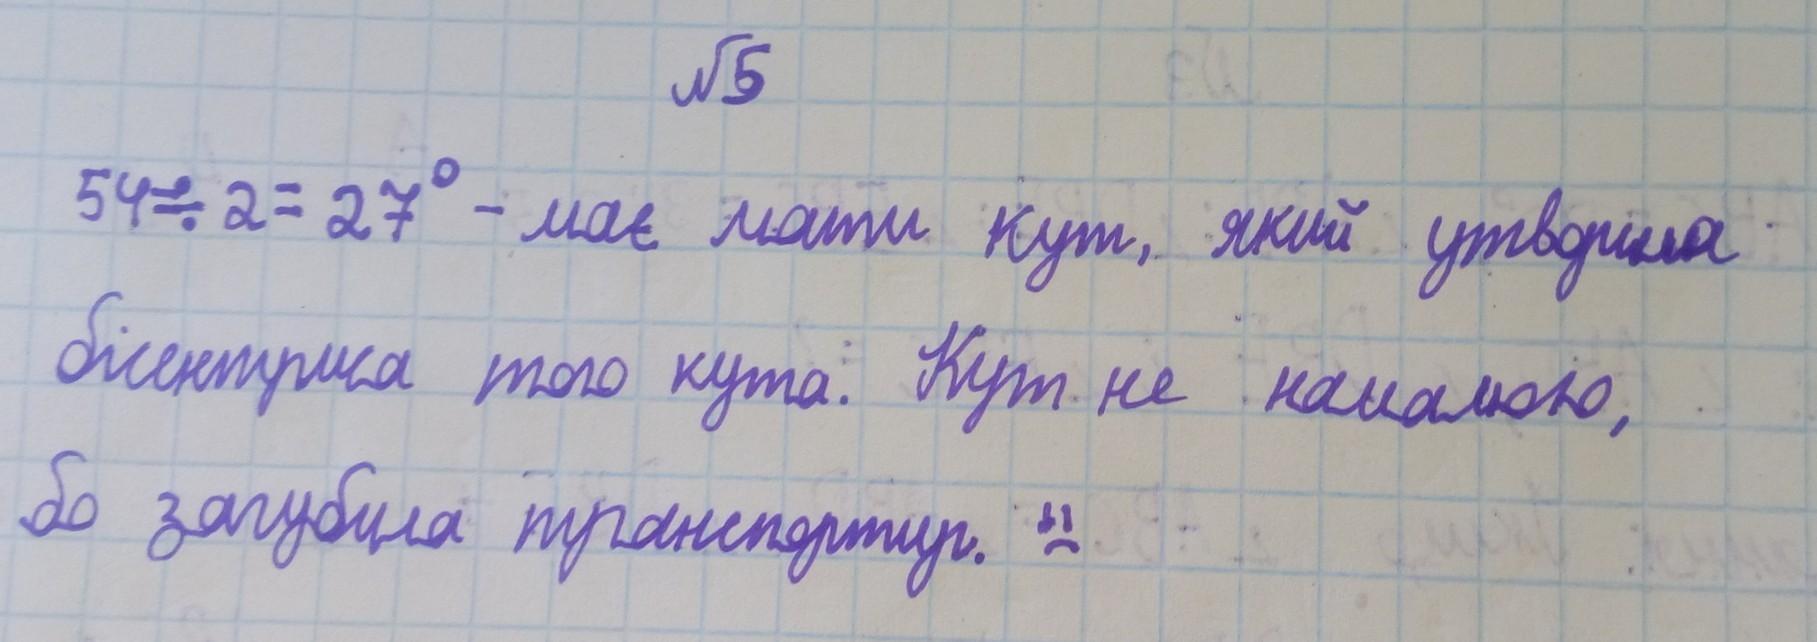 №5
54÷2=27° - має мати кут, який утворила
бісектриса того кута. Кут не намалюю,
бо загубила транспортир.